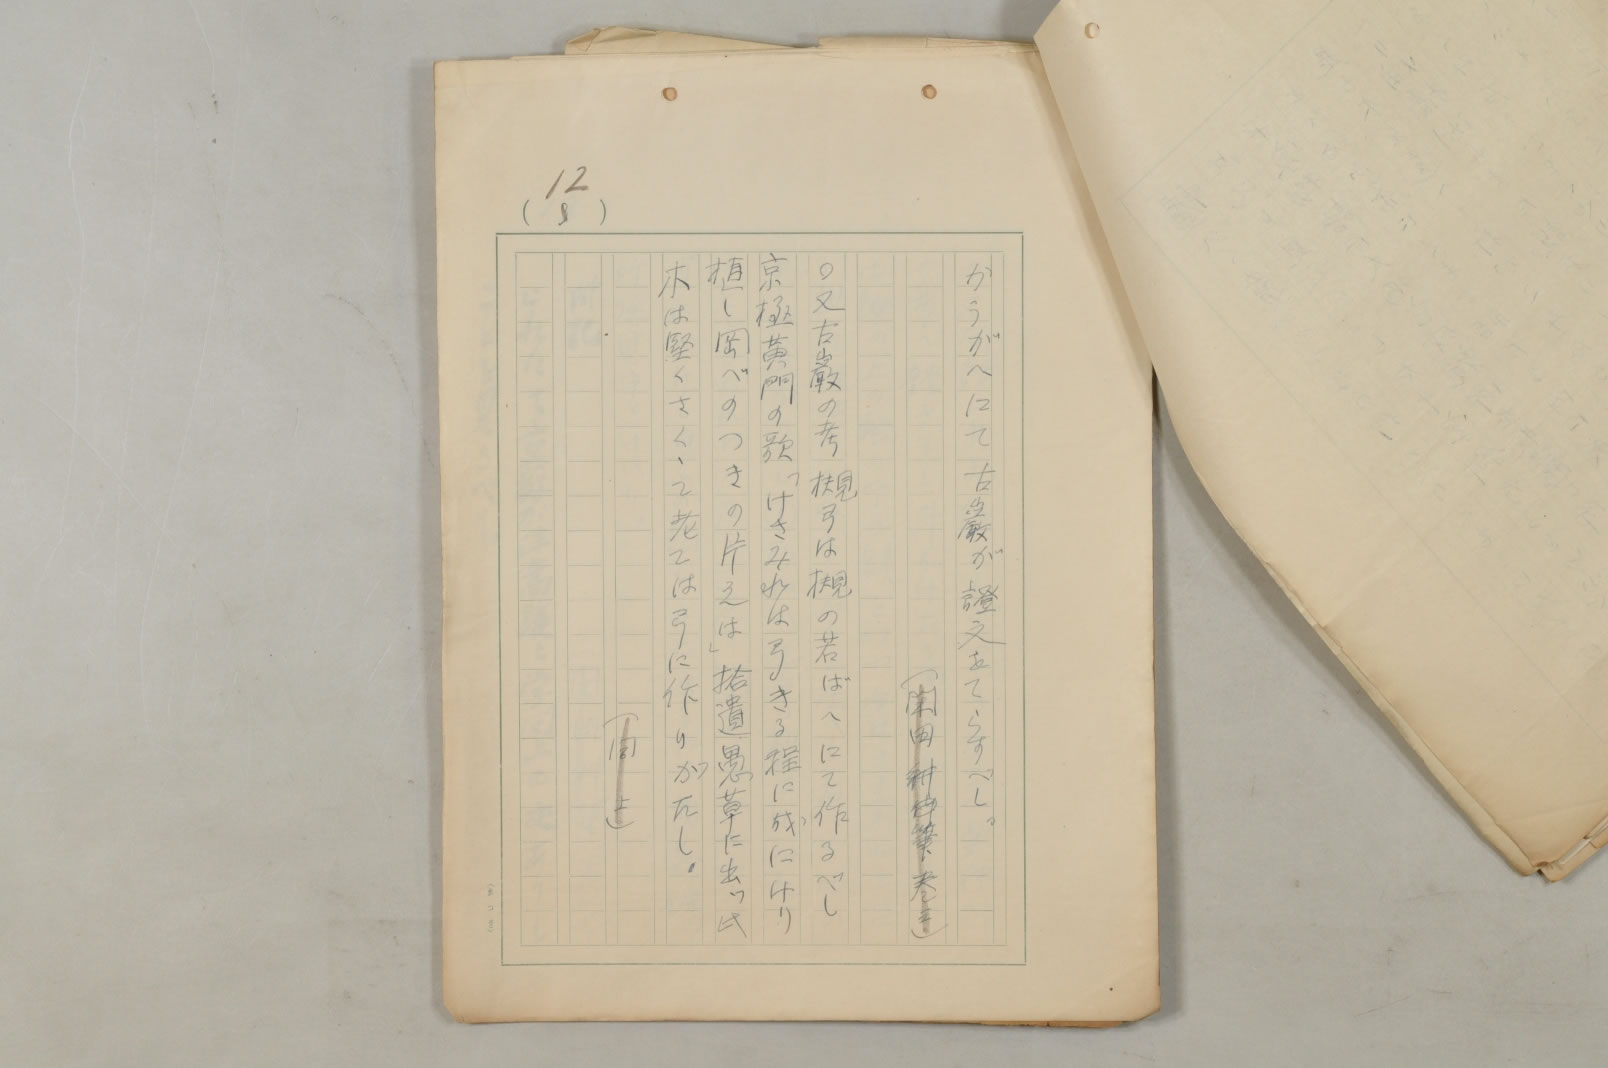 12
( 8 )
かうがへにて古巌が證文あてらすべし。
(閑田耕筆 巻三)
○又古巌の考 槻弓は槻の若ばへにて作るべし
京極黄門の歌「けさみれは弓きる程に成にけり
植し岡べのつきの片えは」拾遺愚草に出ッ此
木は堅くさくくて老ては弓に作りがたし。
(同上)